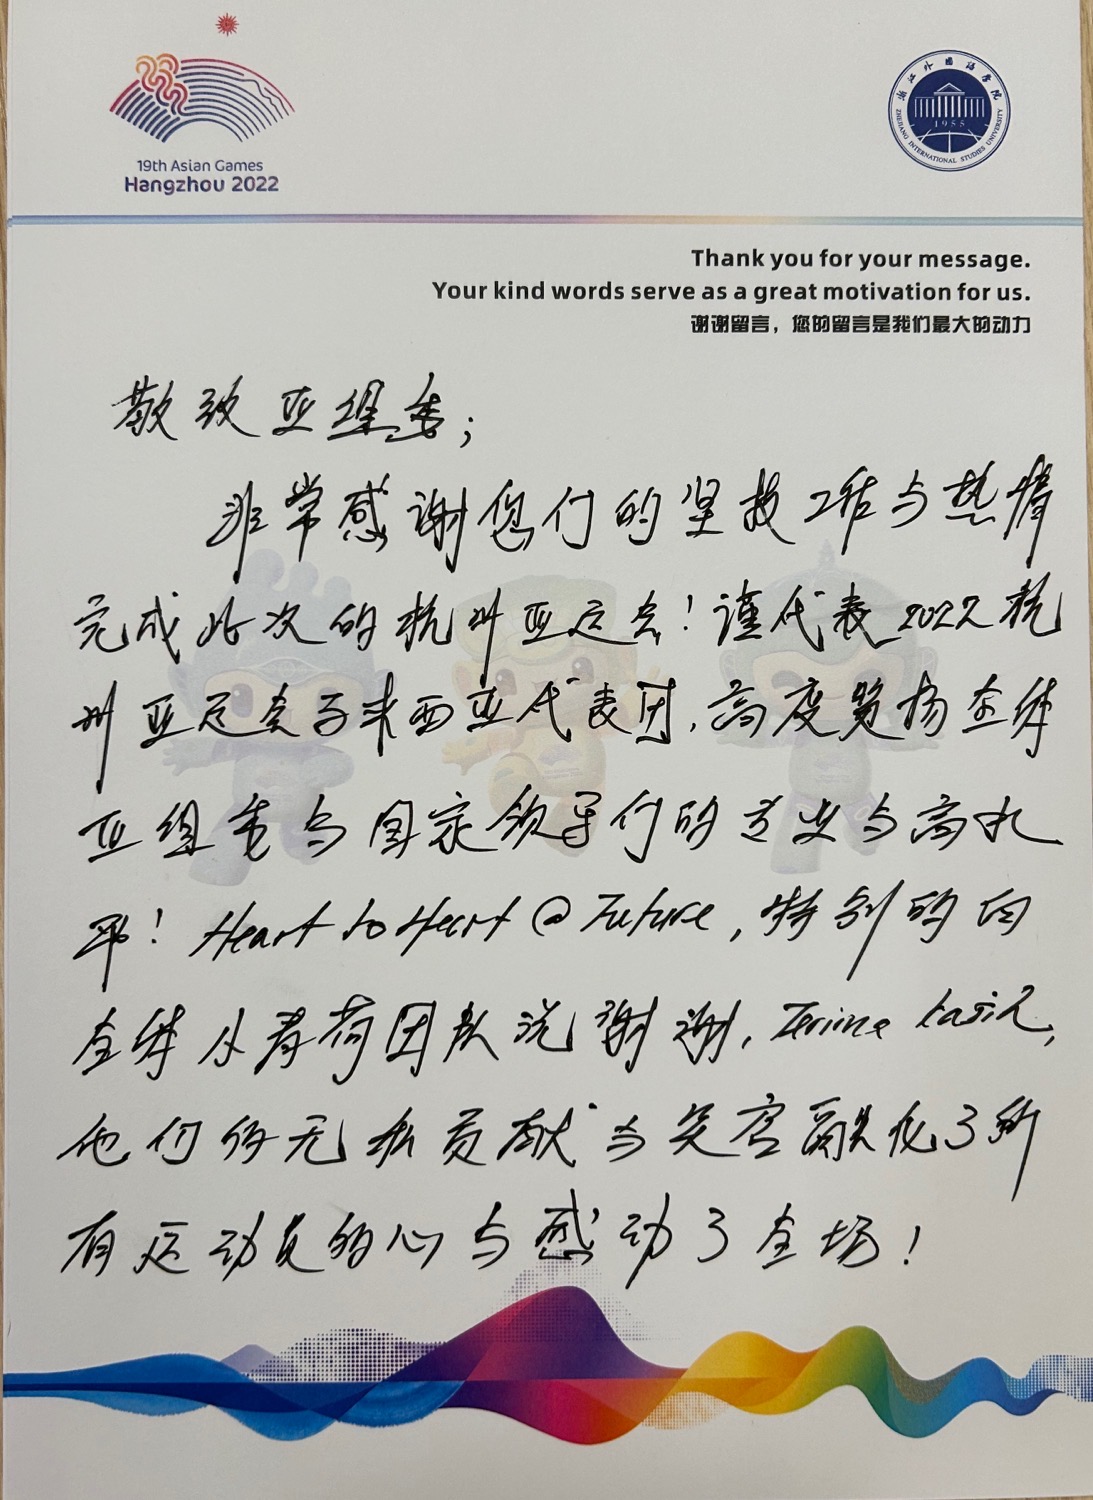 19th Asian Games
Hangzhou 2022
浙江外国语学院
1955
ZHEJIANG INTERNATIONAL STUDIES UNIVERSITY
Thank you for your message.
Your kind words serve as a great motivation for us.
谢谢留言，您的留言是我们最大的动力
敬致亚组委；
非常感谢您们的坚技工作与热情
完成此次的杭州亚运会！谨代表2022杭
州亚运会马来西亚代表团，高度赞扬全体
亚组委与国家领导们的专业与高水
平！Heart to Heart @ Future，特别的向
全体小青荷团队说谢谢，Terima kasih，
他们的无私贡献与笑容融化了所
有运动员的心与感动了全场！